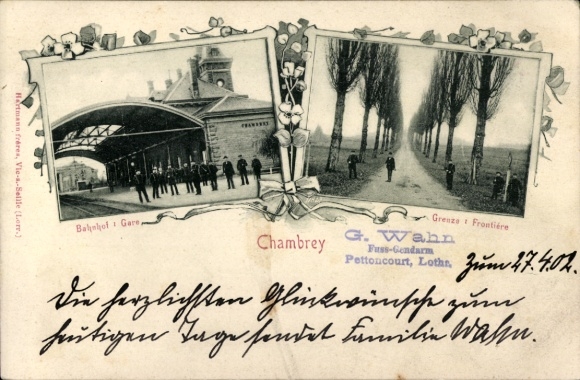 Hartmann frères, Vic-a.-Seille (Lorr.)
CHAMBREY
Bahnhof : Gare
Grenze : Frontière
Chambrey
G. Wahn
Fuss-Gendarm
Pettoncourt, Lothr.
Zum 27.4.02.
Die herzlichsten Glückwünsche zum
heutigen Tage sendet Familie Wahn.